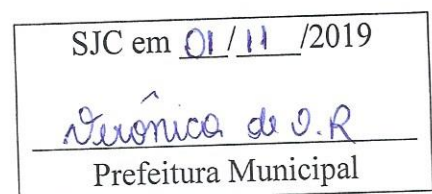 SJC em 01/11/2019
Verônica de O.R
Prefeitura Municipal